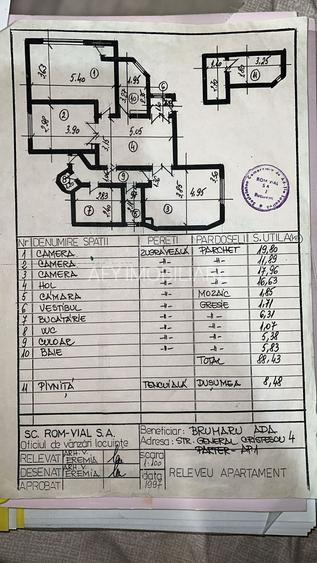 3,63
5.40
1
1.95
6
1.10
3.25
11
2
2.98
3.90
10
5,05
4
3,15
5
9
7
2.83
8
3
4,95
ROM-VIAL
S.A.
Nr DENUMIRE SPATII PERETI PARDOSELI S.UTILA(m²)
1 CAMERA ZUGRAVEALĂ PARCHET 19,80
2 CAMERA -"- -"- 11,29
3 CAMERA -"- -"- 17,96
4 HOL -"- -"- 16,63
5 CĂMARA -"- MOZAIC 1,85
6 VESTIBUL -"- GRESIE 1,71
7 BUCATĂRIE -"- -"- 6,31
8 WC -"- -"- 1,07
9 CULOAR -"- -"- 5,38
10 BAIE -"- -"- 5,83
TOTAL 88,43
11 PIVNIȚĂ TENCUIALĂ DUȘUMEA 8,48
SC. ROM-VIAL S.A.
Oficiul de vânzări locuințe
Beneficiar: BRUMARU ADA
Adresa: STR. GENERAL CRISTESCU 4
PARTER - AP.1
RELEVAT ARH. V. EREMIA
DESENAT ARH. V. EREMIA
APROBAT
scara 1:100
data 1997
RELEVEU APARTAMENT